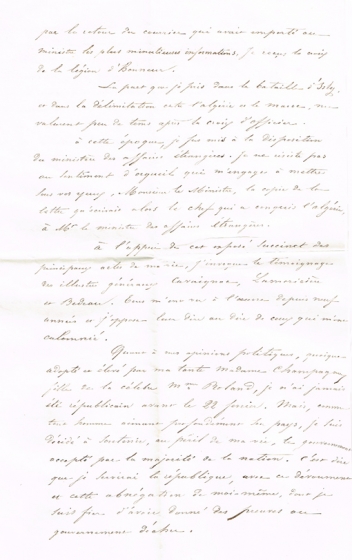 par le retour du courrier qui avait emporté au
ministre les plus minutieuses informations. Je reçus la croix
de la légion d'Honneur.
La part que je pris dans la bataille d'Isly,
et dans la délimitation entre l'algérie et le maroc, me
valurent peu de tems après la croix d'officier.
à cette époque, je fus mis à la disposition
du ministre des affaires étrangères. Je ne résiste pas
au sentiment d'orgueil qui m'engage à mettre
sous vos yeux, Monsieur le Ministre, la copie de la
lettre qu'écrivait alors le chef qui a conquis l'algérie,
à Mr le ministre des affaires étrangères.
à l'appui de cet exposé succinct des
principaux actes de ma vie, j'invoque le témoignage
des illustres généraux Cavaignac, Lamoricière
et Bedeau. Tous m'ont vu à l'oeuvre depuis neuf
années et j'oppose leur dire au dire de ceux qui m'ont
calomnié.
Quant à mes opinions politiques, quoique
adopté et élevé par ma tante Madame Champagneux
fille de la célèbre Me Roland, je n'ai jamais
été républicain avant le 22 février. Mais, comme
tout homme aimant profondément son pays, je suis
décidé à soutenir, au péril de ma vie, le gouvernement
accepté par la majorité de la nation. C'est dire
que je servirai la république, avec ce dévouement
et cette abnégation de moi-même, dont je
suis fier d'avoir donné des preuves au
gouvernement déchu.